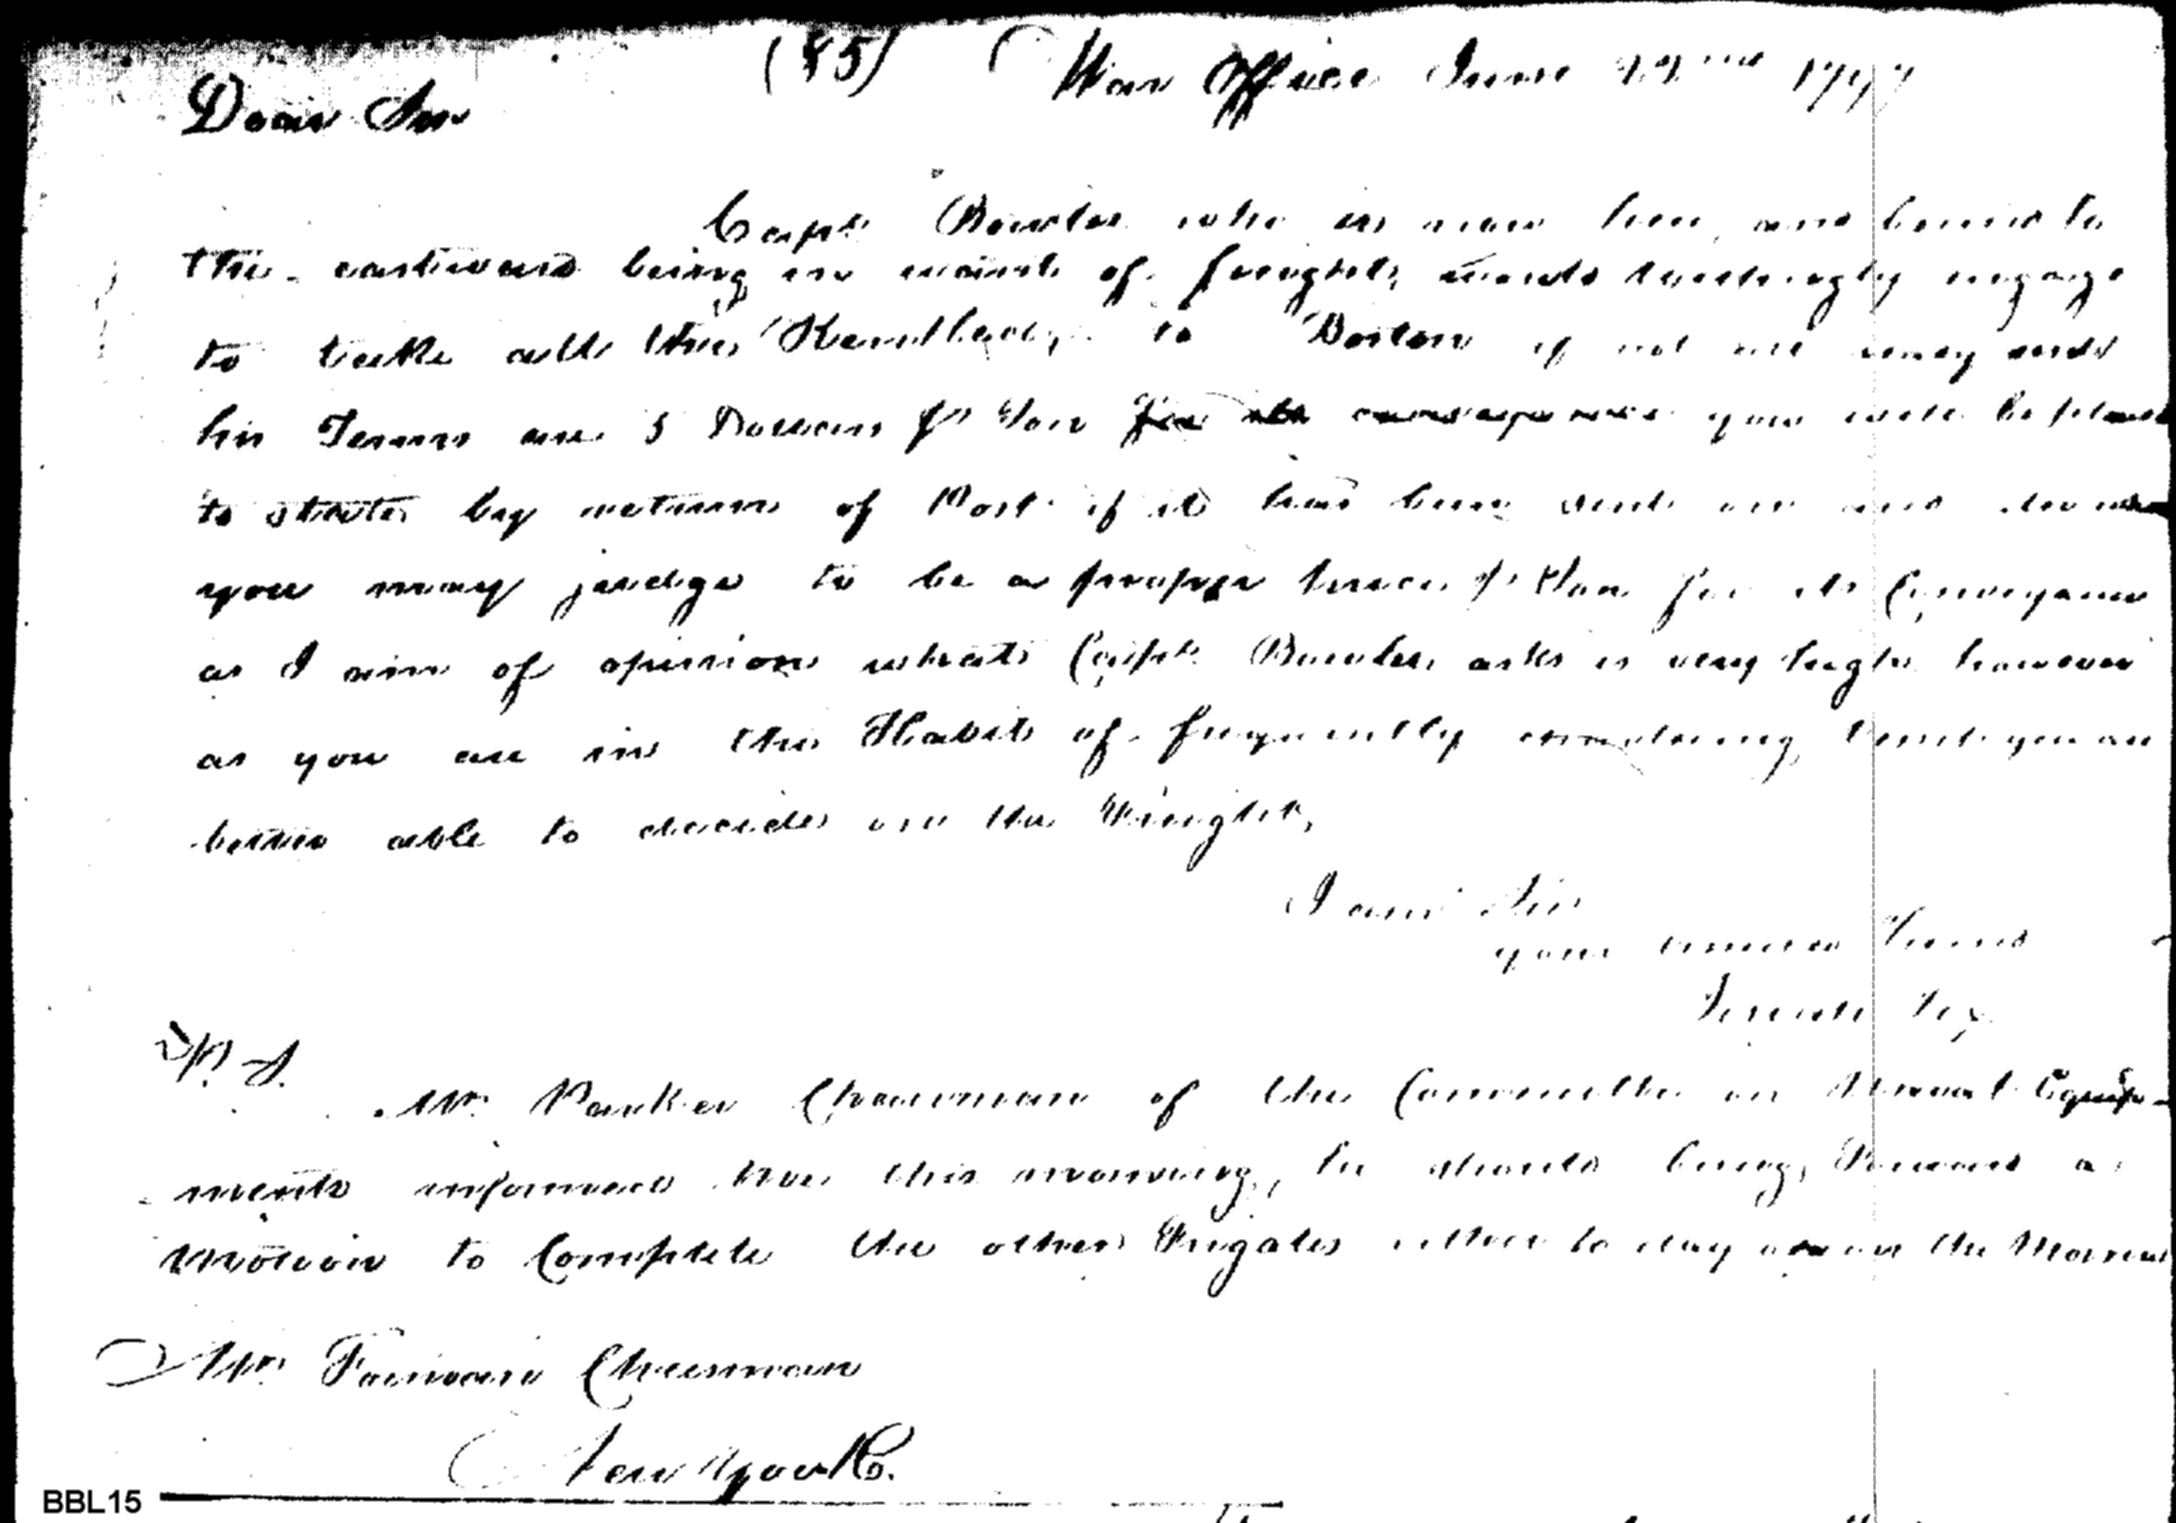 (85) War Office June 22nd 1797
Dear Sir
Capt. Bowles who is now here, and bound to
the eastward being in want of freight, would willingly engage
to take all the Kentledge to Boston if not all many and
his Terms are 5 Dollars pr Ton for its conveyance you will be pleased
to state by return of Post if it has been sent on and also what
you may judge to be a proper price pr Ton for its Conveyance
as I am of opinion what Capt. Bowles asks is very high however
as you are in the Habit of frequently you are
better able to decide on the Freight,
I am Sir
your Friend
P.S.
Mr. Parker Chairman of the Committee on Naval Equip-
-ments informed me this morning, he should bring forward a
Motion to Complete the other Frigates either to day or on the Morrow
Mr. Forman Cheesman
New York.
BBL15